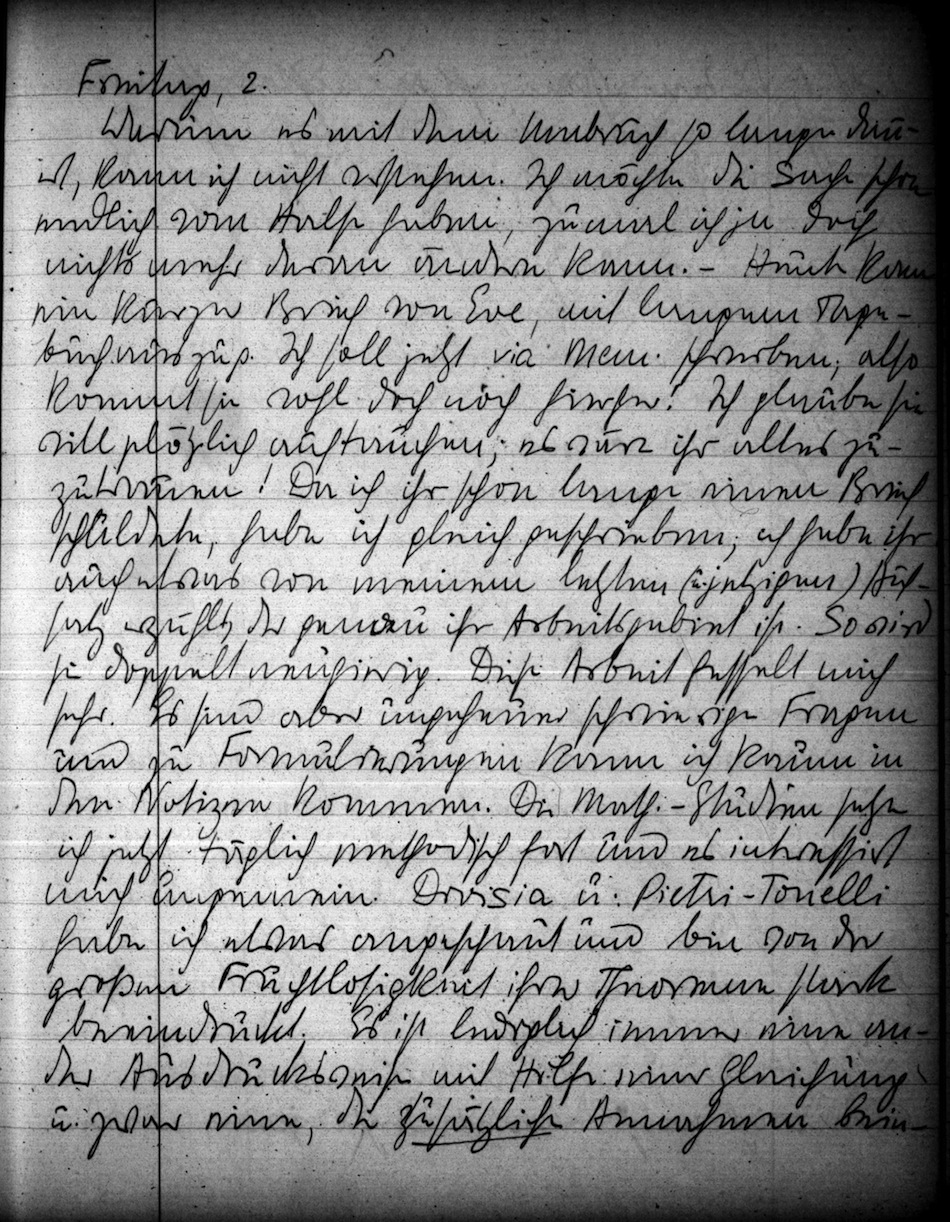 Freitag, 2.
Warum es mit dem Umbruch so lange dau-
ert, kann ich nicht verstehen. Ich möchte die Sache schon
endlich vom Halse haben, zumal ich ja doch
nichts mehr daran ändern kann. – Heute kam
ein kurzer Brief von Eve, mit langem Tage-
buchauszug. Ich soll jetzt via Mem. schreiben; also
kommt sie wohl doch noch hierher! Ich glaube sie
will plötzlich auftauchen; es wäre ihr alles zu-
zutrauen! Da ich ihr schon lange einen Brief
schuldete, habe ich gleich geschrieben; ich habe ihr
auch etwas von meinem letzten (u. jetzigen) Auf-
satz erzählt, der genau ihr Arbeitsgebiet ist. So wird
sie doppelt neugierig. Diese Arbeit fesselt mich
sehr. Es sind aber ungeheuer schwierige Fragen
und zu Formulierungen kann ich kaum in
den Notizen kommen. Die Math.-Studien setze
ich jetzt täglich methodisch fort und es interessiert
mich ungemein. Divisia u. Pietri-Tonelli
habe ich etwas angeschaut und bin von der
großen Fruchtlosigkeit ihrer Theoreme stark
beeindruckt. Es ist lediglich immer eine an-
dere Ausdrucksweise mit Hilfe einer Gleichung
u. zwar eine, die zusätzliche Annahmen bein-